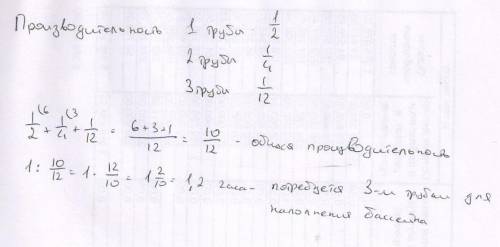 Производительность 1 трубы 1/2
2 трубы 1/4
3 трубы 1/12
1/2 (6 + 1/4 (3 + 1/12 = 6+3+1/12 = 10/12 - общая производительность
1 : 10/12 = 1 · 12/10 = 1 2/10 = 1,2 часа - потребуется 3-м трубам для
наполнения бассейна